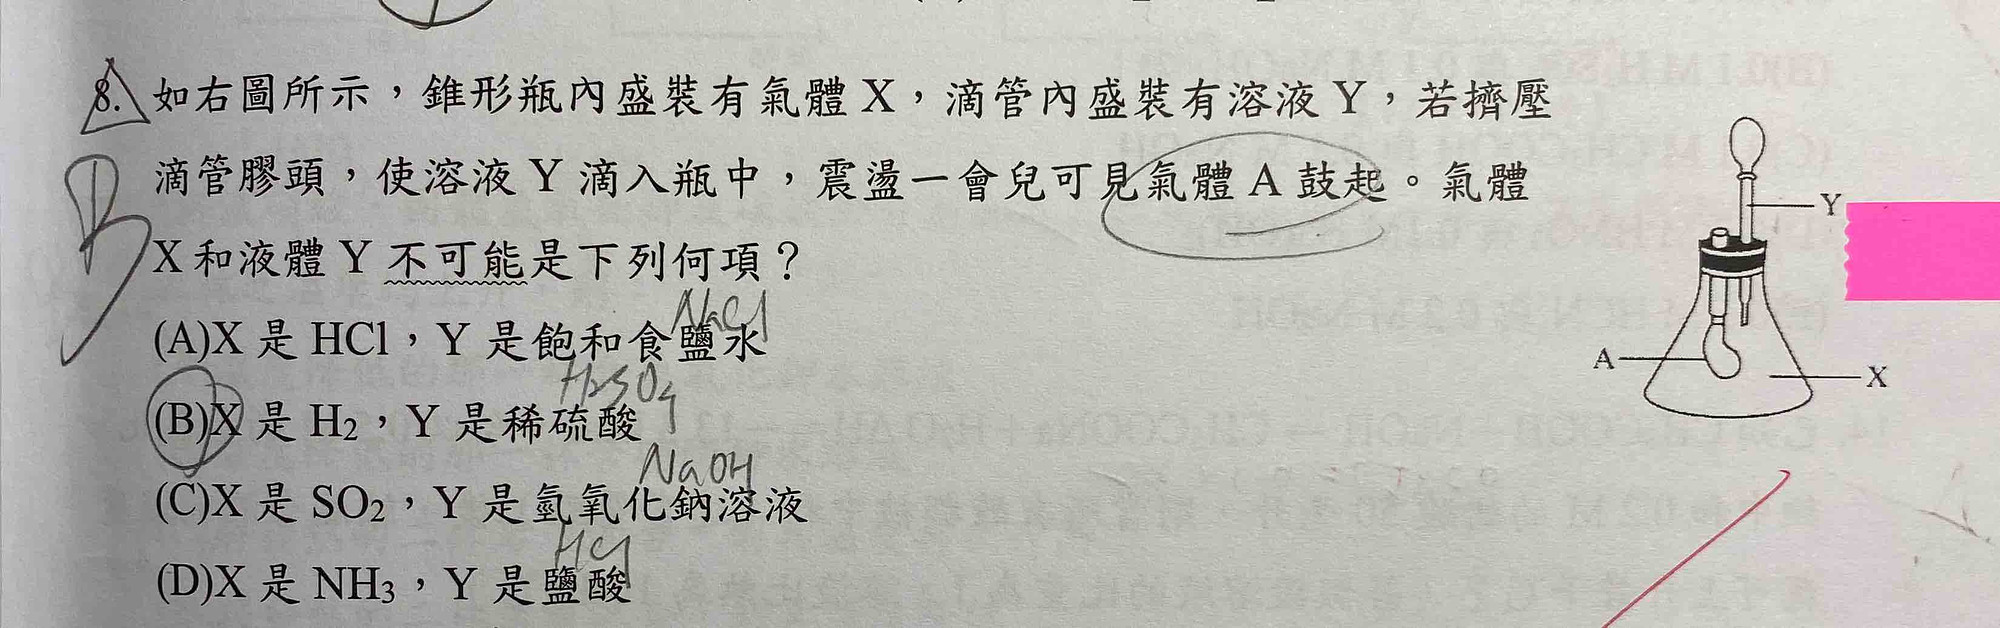 8. 如右圖所示，錐形瓶內盛裝有氣體 X，滴管內盛裝有溶液 Y，若擠壓
滴管膠頭，使溶液 Y 滴入瓶中，震盪一會兒可見氣體 A 鼓起。氣體
X 和液體 Y 不可能是下列何項？
B
NaCl
(A)X 是 HCl，Y 是飽和食鹽水
H2SO4
(B)X 是 H2，Y 是稀硫酸
NaOH
(C)X 是 SO2，Y 是氫氧化鈉溶液
HCl
(D)X 是 NH3，Y 是鹽酸
Y
A
X